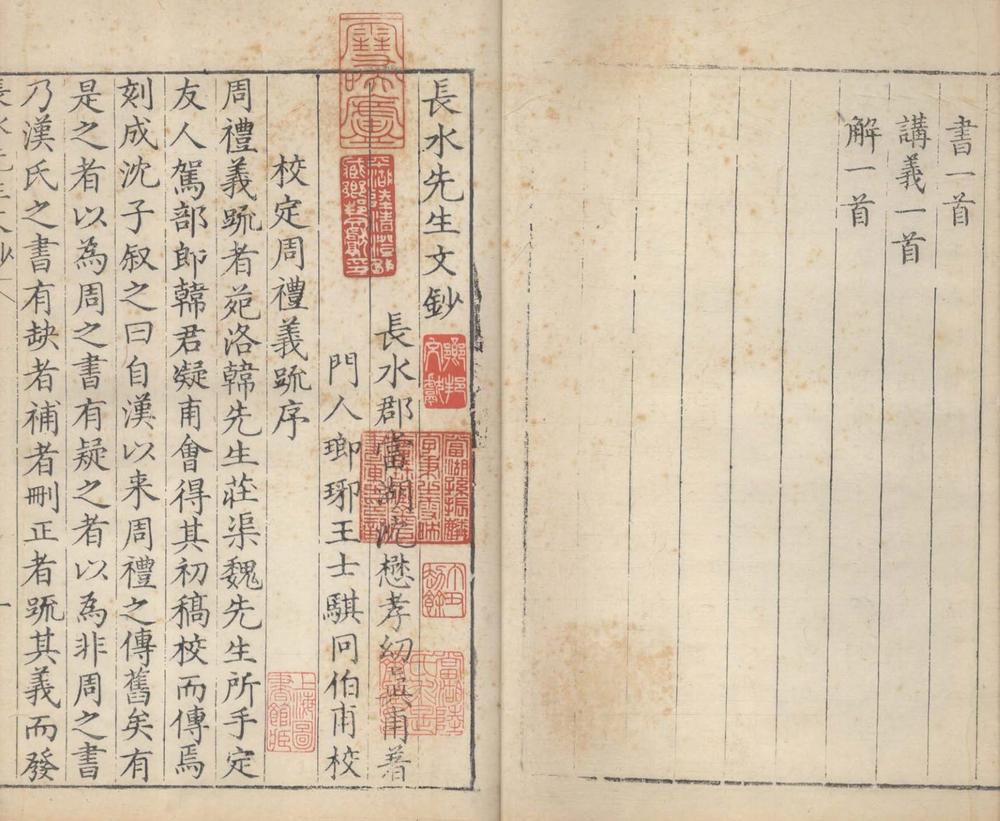 書一首
講義一首
解一首
長水先生文鈔
長水郡當湖沈懋孝幼真甫著
門人瑯琊王士騏冏伯甫校
校定周禮義䟽序
周禮義䟽者苑洛韓先生莊渠魏先生所手定
友人駕部郎韓君凝甫會得其初稿校而傳焉
刻成沈子叙之曰自漢以来周禮之傳舊矣有
是之者以為周之書有疑之者以為非周之書
乃漢氏之書有缺者補者刪正者䟽其義而發
長水先生文鈔
一
鄉邦文獻
上海圖書館藏